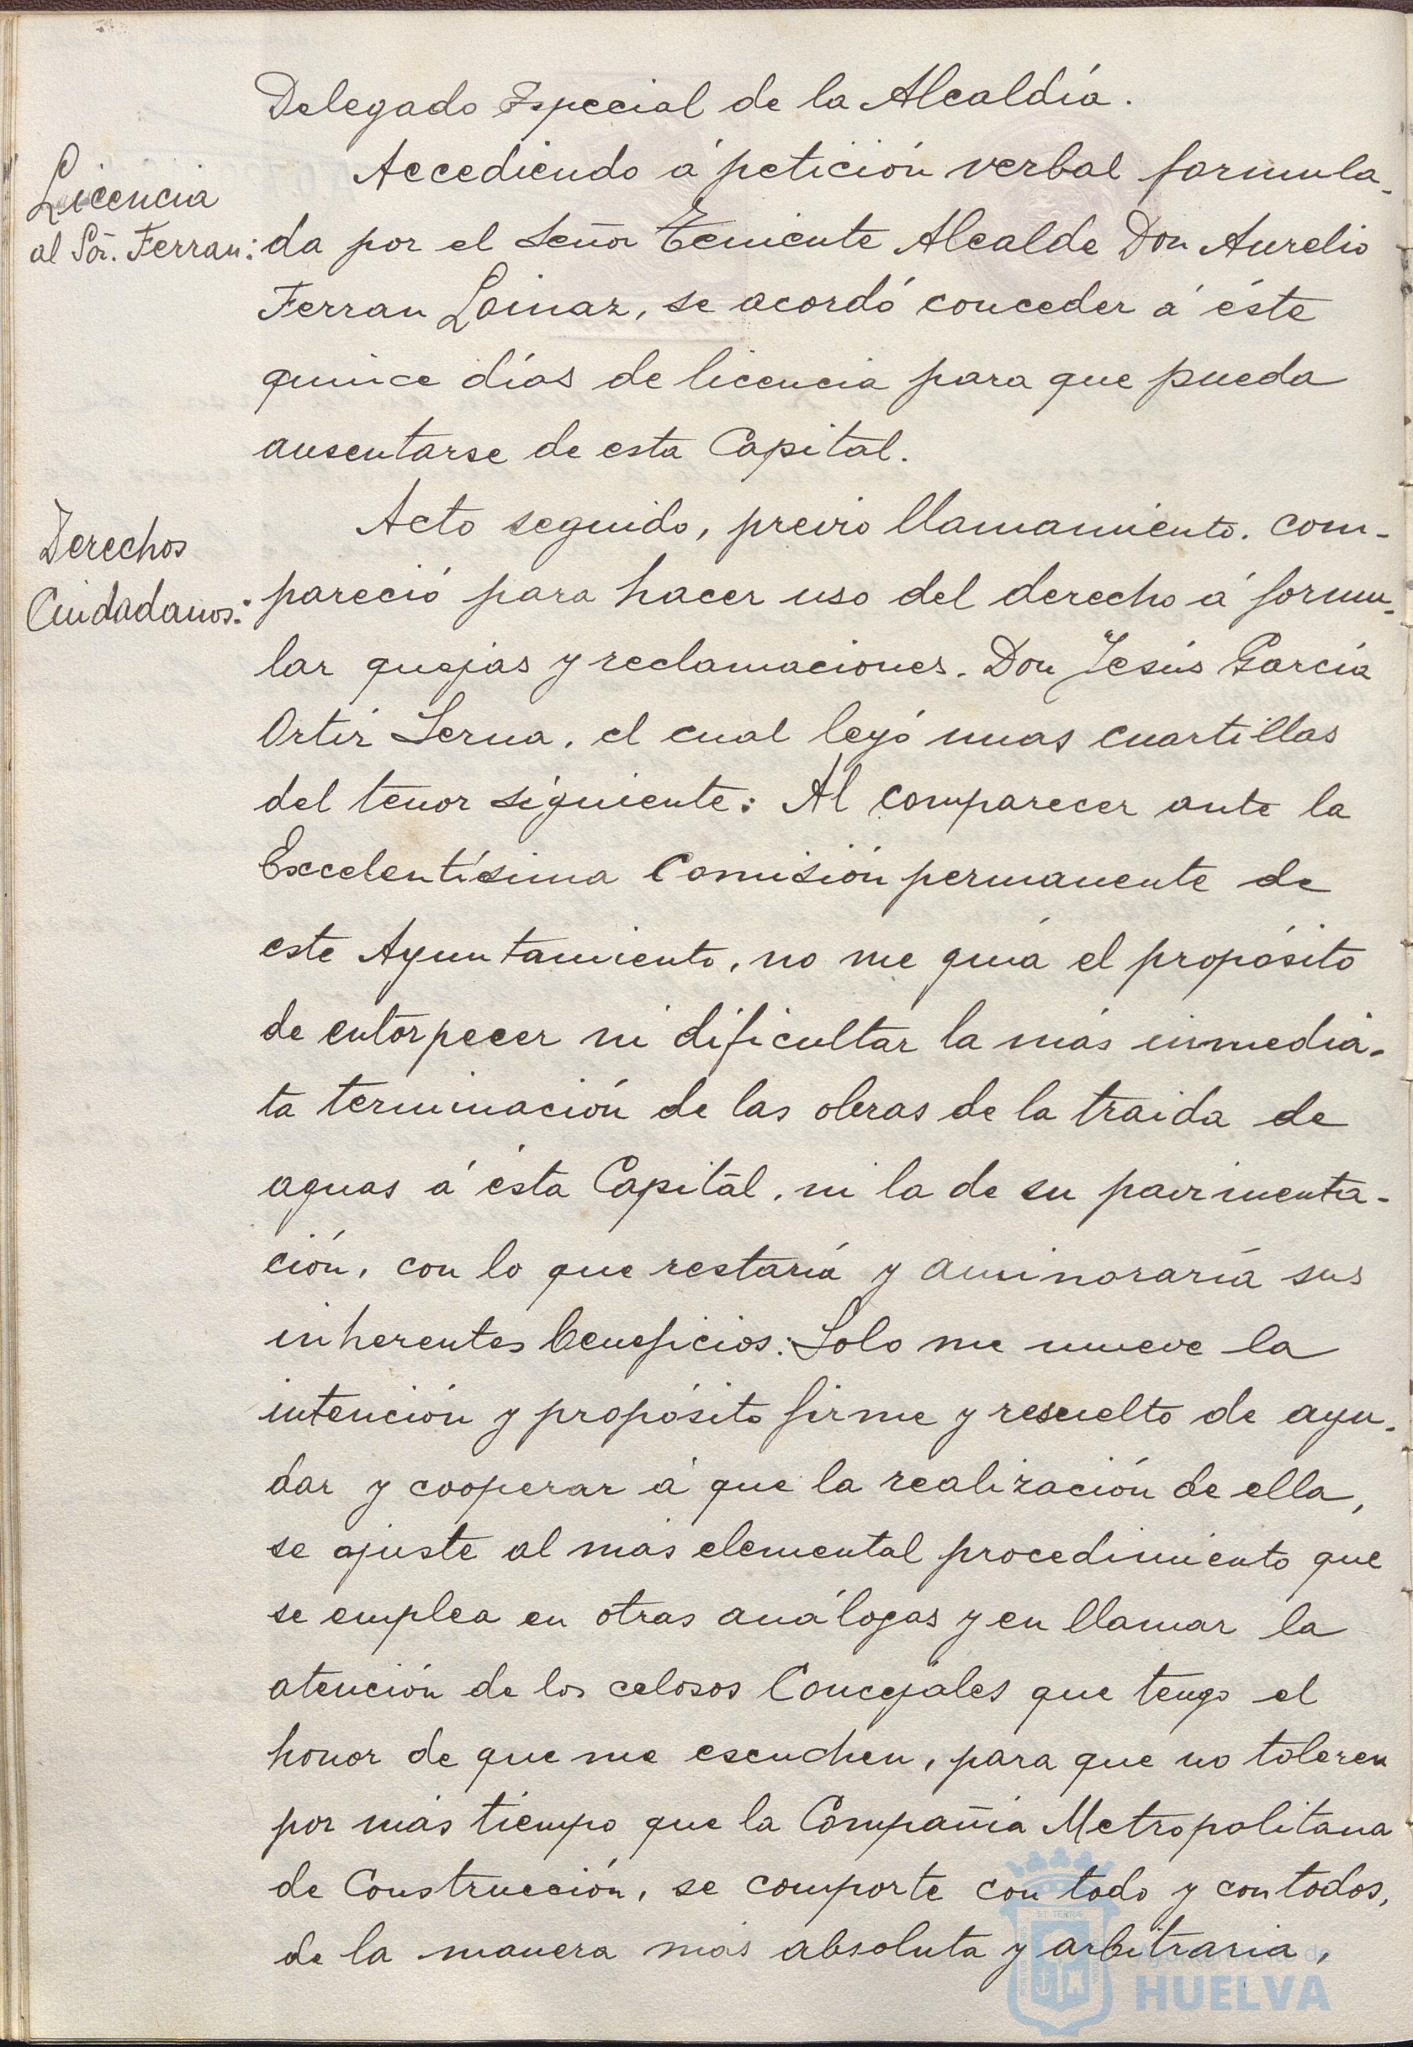 Delegado Especial de la Alcaldía.
Licencia
al Sōr. Ferran:
Accediendo á petición verbal formula-
da por el Señor Teniente Alcalde Don Aurelio
Ferran Loinaz, se acordó conceder á éste
quince días de licencia para que pueda
ausentarse de esta Capital.
Derechos
Ciudadanos:
Acto seguido, previo llamamiento. com-
pareció para hacer uso del derecho á formu-
lar quejas y reclamaciones. Don Jesús García
Ortiz Serna, el cual leyó unas cuartillas
del tenor siguiente: Al comparecer ante la
Excelentísima Comisión permanente de
este Ayuntamiento, no me guía el propósito
de entorpecer ni dificultar la más inmedia-
ta terminación de las obras de la traida de
aguas á ésta Capital, ni la de su pavimenta-
ción, con lo que restaría y aminoraría sus
inherentes beneficios: Solo me mueve la
intención y propósito firme y resuelto de ayu-
dar y cooperar á que la realización de ella,
se ajuste al más elemental procedimiento que
se emplea en otras análogas y en llamar la
atención de los celosos Concejales que tengo el
honor de que me escuchen, para que no toleren
por más tiempo que la Compañía Metropolitana
de Construcción, se comporte con todo y con todos,
de la manera más absoluta y arbitraria,
Ayuntamiento de
HUELVA